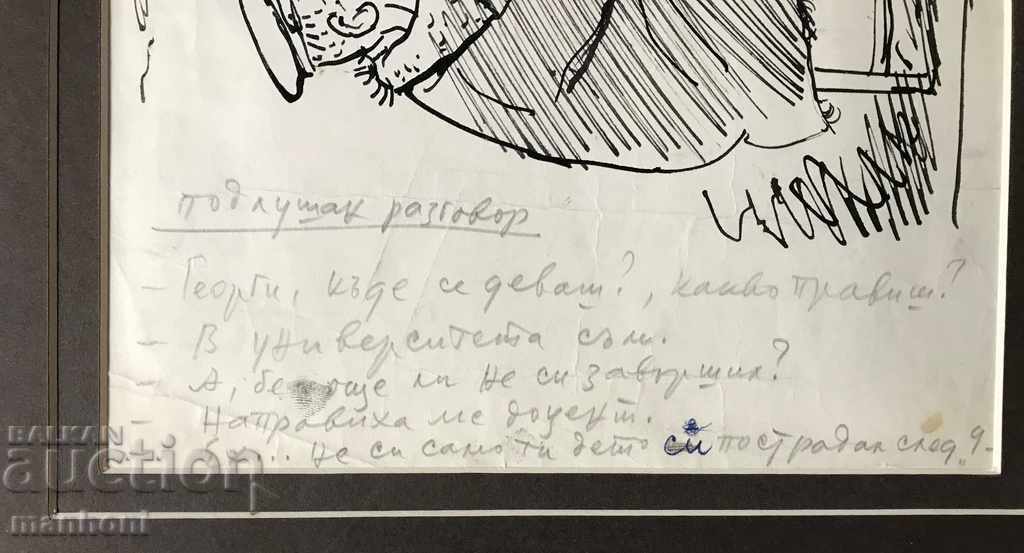 подлушан разговор
– Георги, къде се деваш?, какво правиш?
– В университета съм.
– А, бе още ли не си завършил?
– Направиха ме доцент.
... не си само ти дето си пострадал след „9-
BALKAN
auction
manhoni